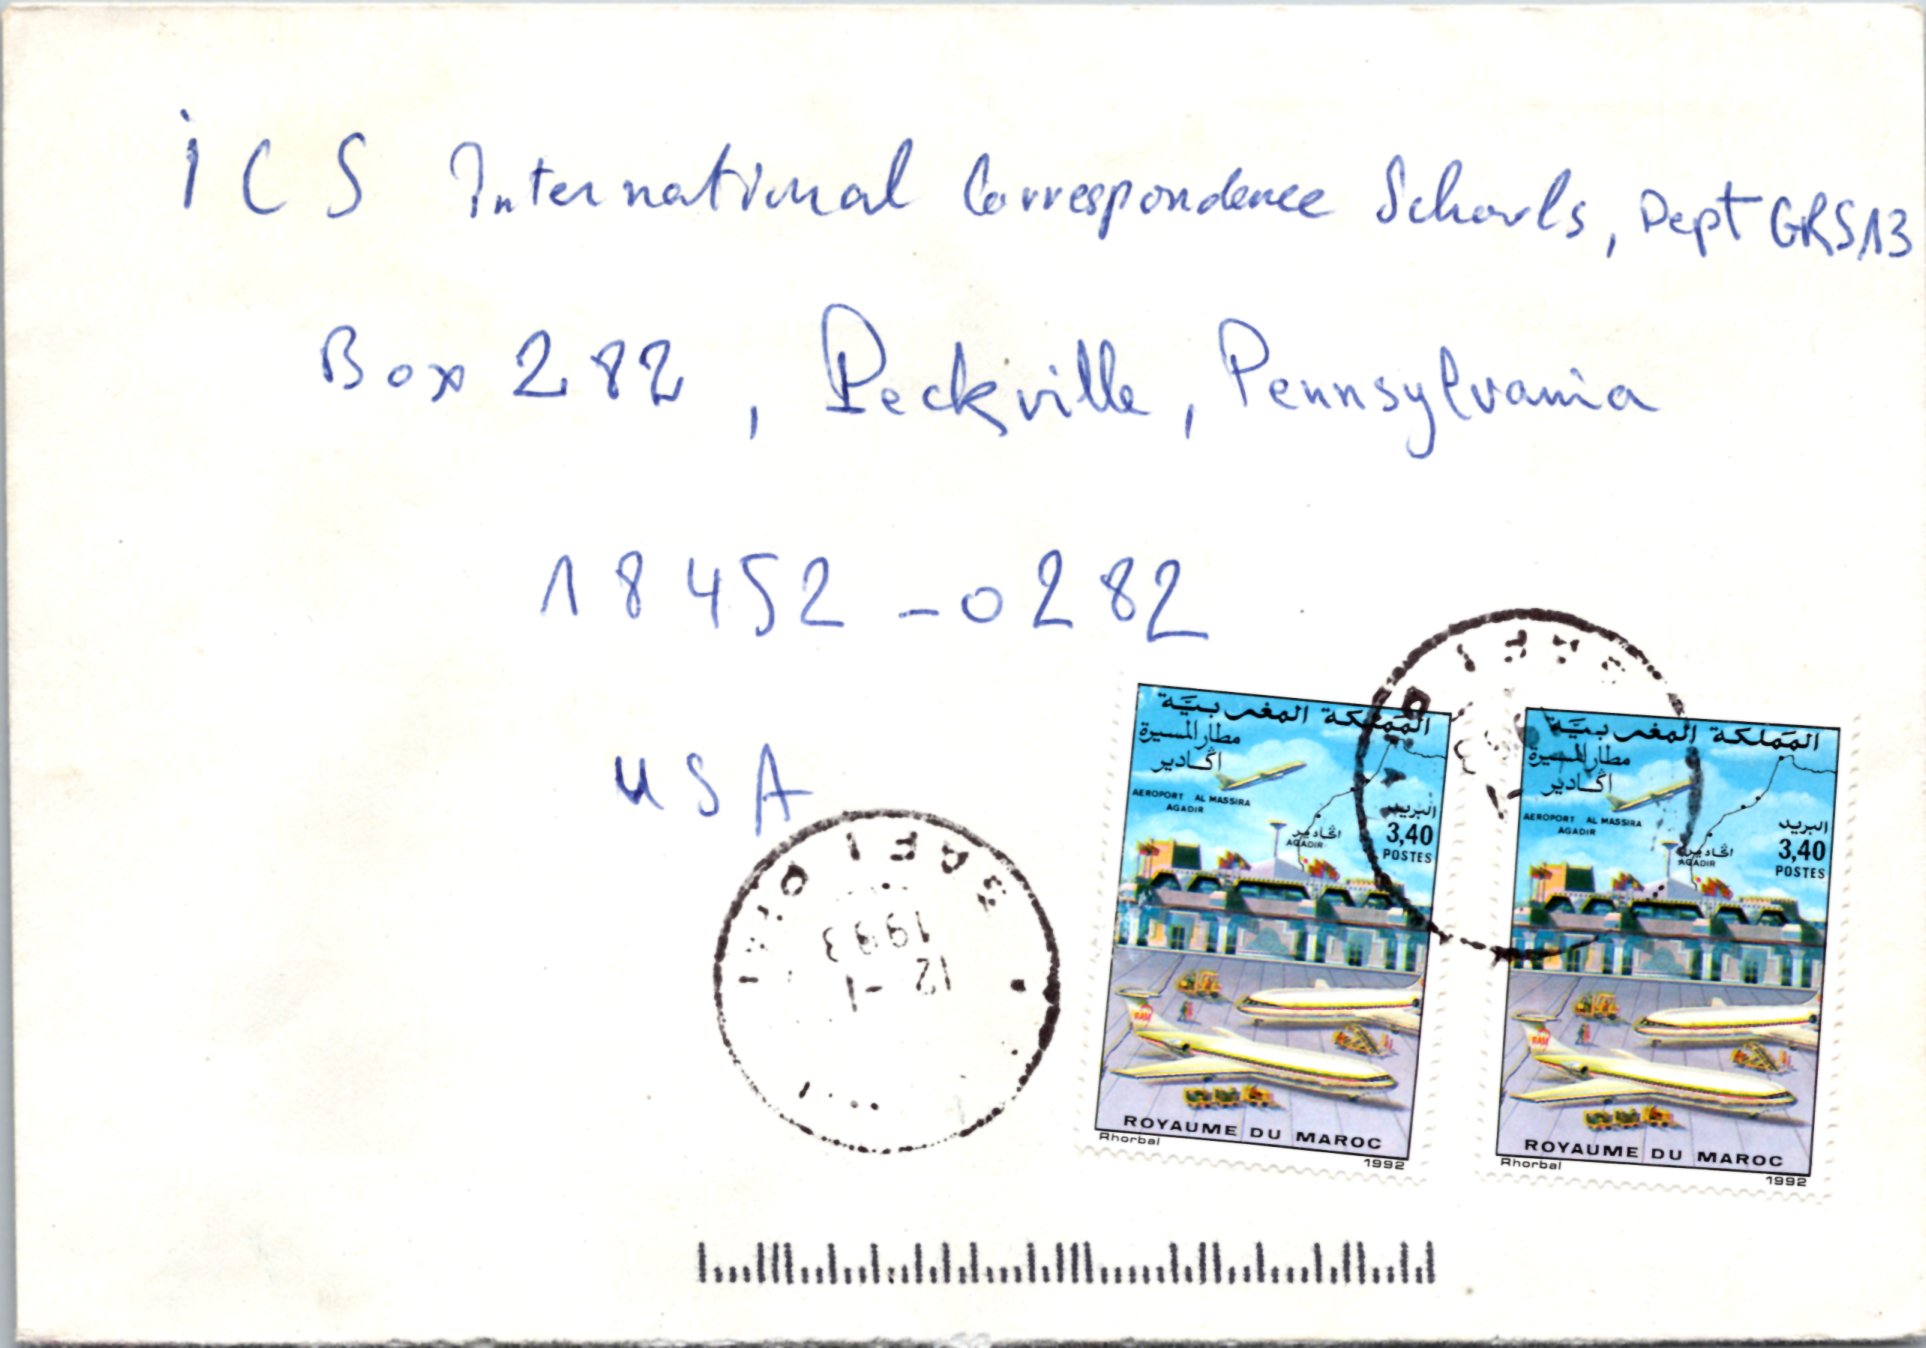 ICS International Correspondence Schools, Dept GRS13
Box 282, Peckville, Pennsylvania
18452-0282
USA
المملكة المغربية
مطار المسيرة
اڭادير
AEROPORT AL MASSIRA
AGADIR
اڭادير
AGADIR
البريد
3,40
POSTES
RAM
ROYAUME DU MAROC
Rhorbal
1992
المملكة المغربية
مطار المسيرة
اڭادير
AEROPORT AL MASSIRA
AGADIR
اڭادير
AGADIR
البريد
3,40
POSTES
RAM
ROYAUME DU MAROC
Rhorbal
1992
SAFI
12-1
1993
SAFI